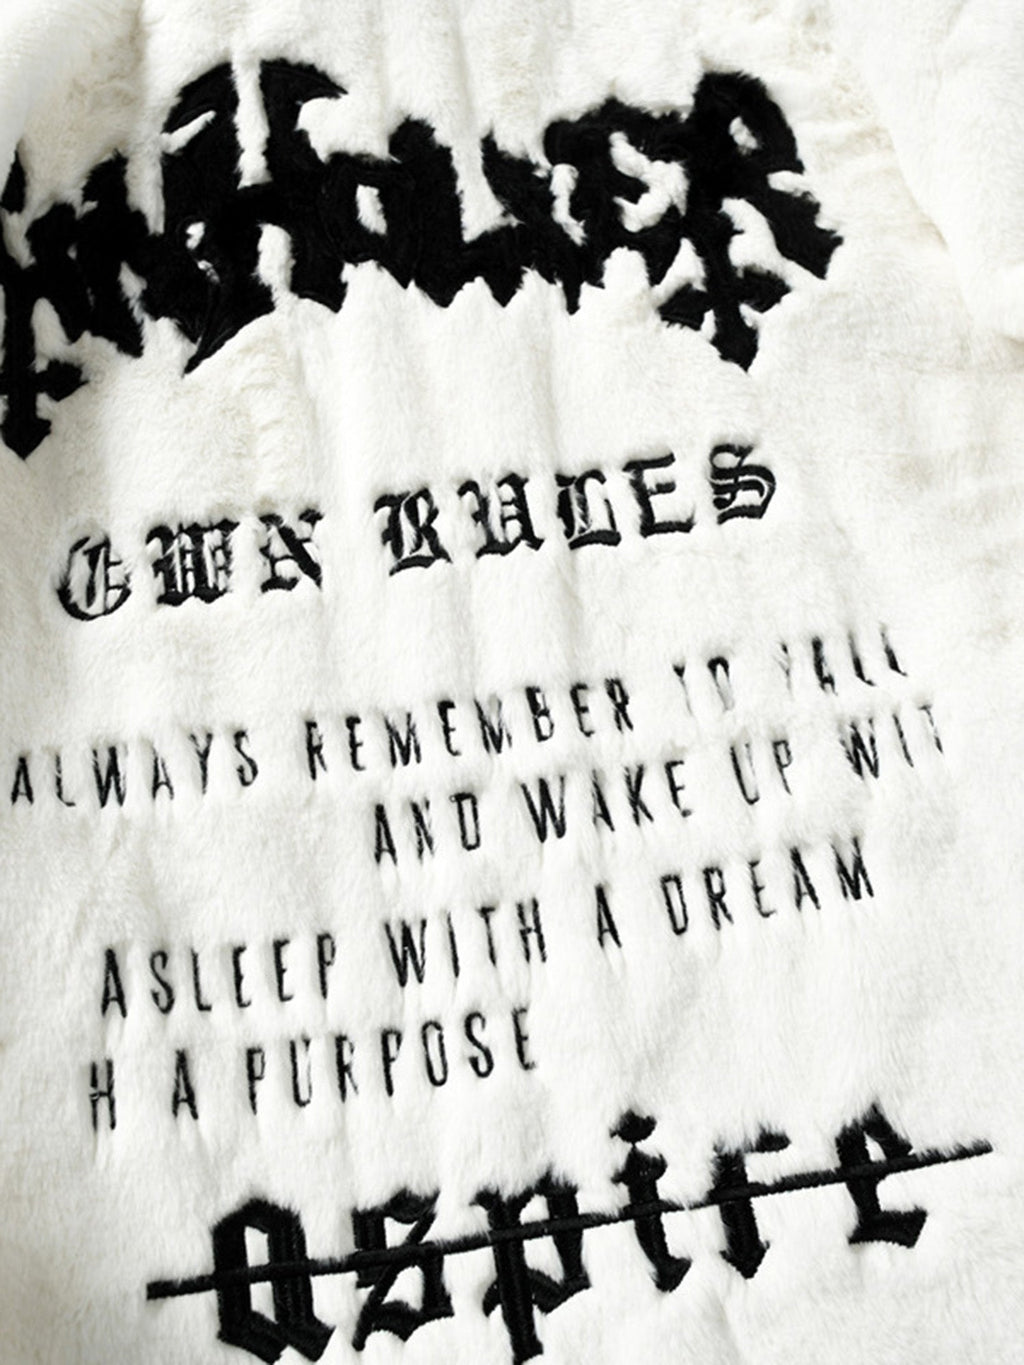 OWN RULES
ALWAYS REMEMBER TO FALL
AND WAKE UP WIT
ASLEEP WITH A DREAM
H A PURPOSE
aspire